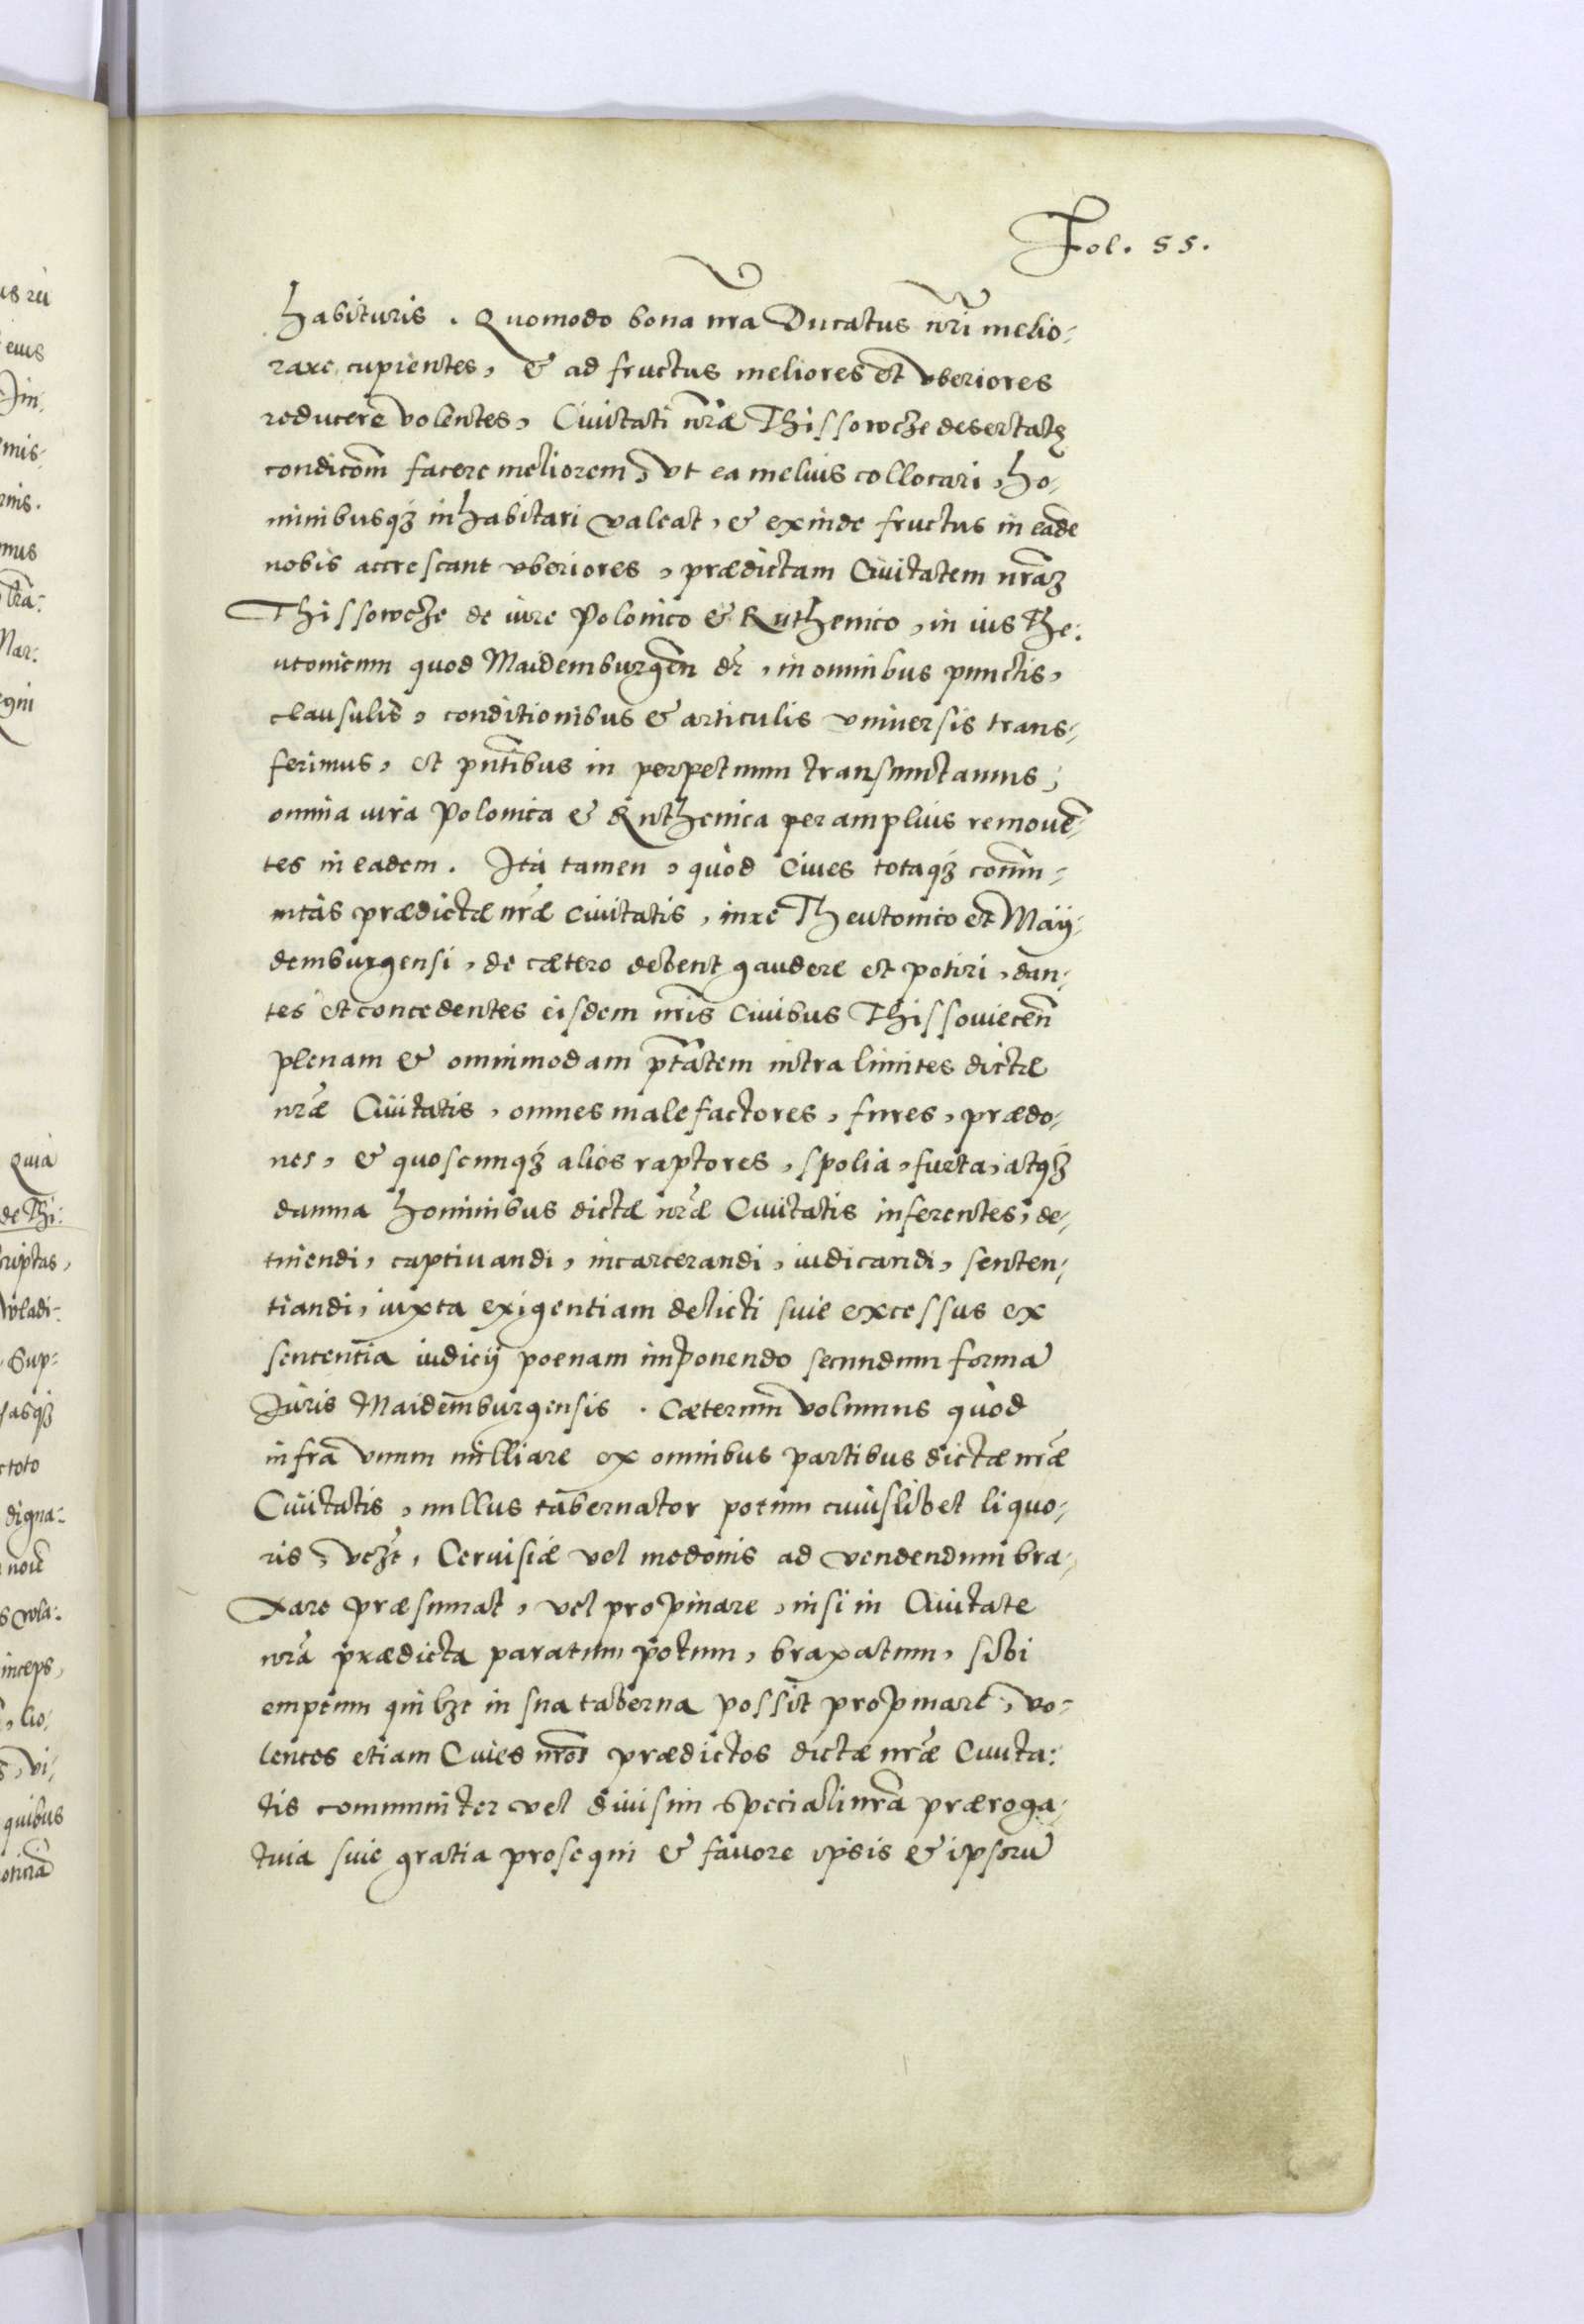 Fol. 55.
habituris. Quomodo bona nr̃a Ducatus nr̃i melio-
rare cupientes, & ad fructus meliores et vberiores
reducere volentes, Ciuitati nr̃æ Thissowcze desertatę
condicõm facere meliorem, vt ea melius collocari, ho-
minibusq̃ inhabitari valeat, & exinde fructus in eadẽ
nobis accrescant vberiores, prædictam Ciuitatem nr̃aʒ
Thissowcze de iure Polonico & Ruthenico, in ius The:
utonicum quod Maidemburgeñ dr̃, in omnibus punctis,
clausulis, conditionibus & articulis vniuersis trans-
ferimus, et pñtibus in perpetuum transmutamus,
omnia iura Polonica & Ruthenica per amplius remouẽ-
tes in eadem. Ita tamen, quòd Ciues totaq̃ com̃u-
nitas prædictæ nr̃æ Ciuitatis, iure Theutonico et Maij-
demburgensi, de cætero debent gaudere et potiri, dan-
tes et concedentes eisdem nr̃is Ciuibus Thissowieceñ
plenam & omnimodam ptãtem intra limites dictæ
nr̃æ Ciuitatis, omnes malefactores, fures, prædo-
nes, & quoscunq̃ alios raptores, spolia, furta, atq̃
damna hominibus dictæ nr̃æ Ciuitatis inferentes, de-
tinendi, captiuandi, incarcerandi, iudicandi, senten-
tiandi, iuxta exigentiam delicti siue excessus ex
sententia iudicij poenam imponendo secundum formã
Iuris Maidemburgensis. Cæterum volumus quòd
infra vnum milliare ex omnibus partibus dictæ nr̃æ
Ciuitatis, nullus tabernator potum cuiuslibet liquo-
ris, vcz̃t, Ceruisiæ vel medonis ad vendendum bra-
xare præsumat, vel propinare, nisi in Ciuitate
nr̃a prædicta paratum potum, braxatum, sibi
emptum quilʒt in sua taberna possit propinare, vo-
lentes etiam Ciues nr̃os prædictos dictæ nr̃æ Ciuita:
tis communiter vel diuisim speciali nr̃a præroga-
tiua siue gratia prosequi & fauore ipsis & ipsorũ